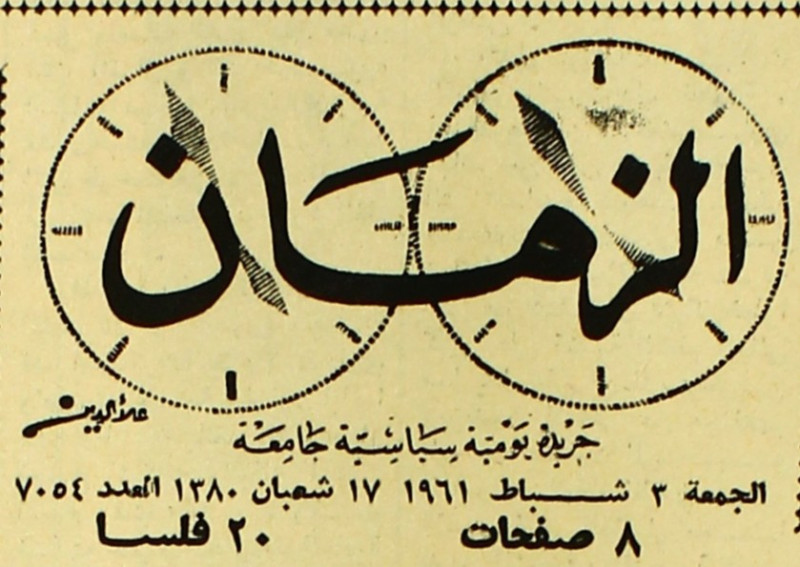 الزمان
علاء الدين
جريدة يومية سياسية جامعة
الجمعة ٣ شباط ١٩٦١ ١٧ شعبان ١٣٨٠ العدد ٧٠٥٤
٨ صفحات ٢٠ فلسا